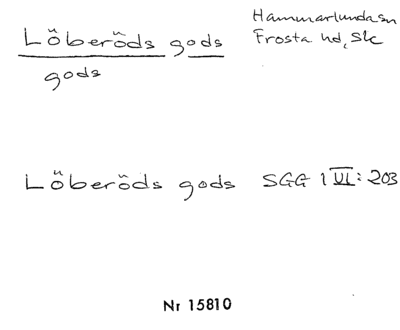 Löberöds gods
gods
Hammarlunda sn
Frosta hd, Sk
Löberöds gods SGG 1 VI: 203
Nr 15810